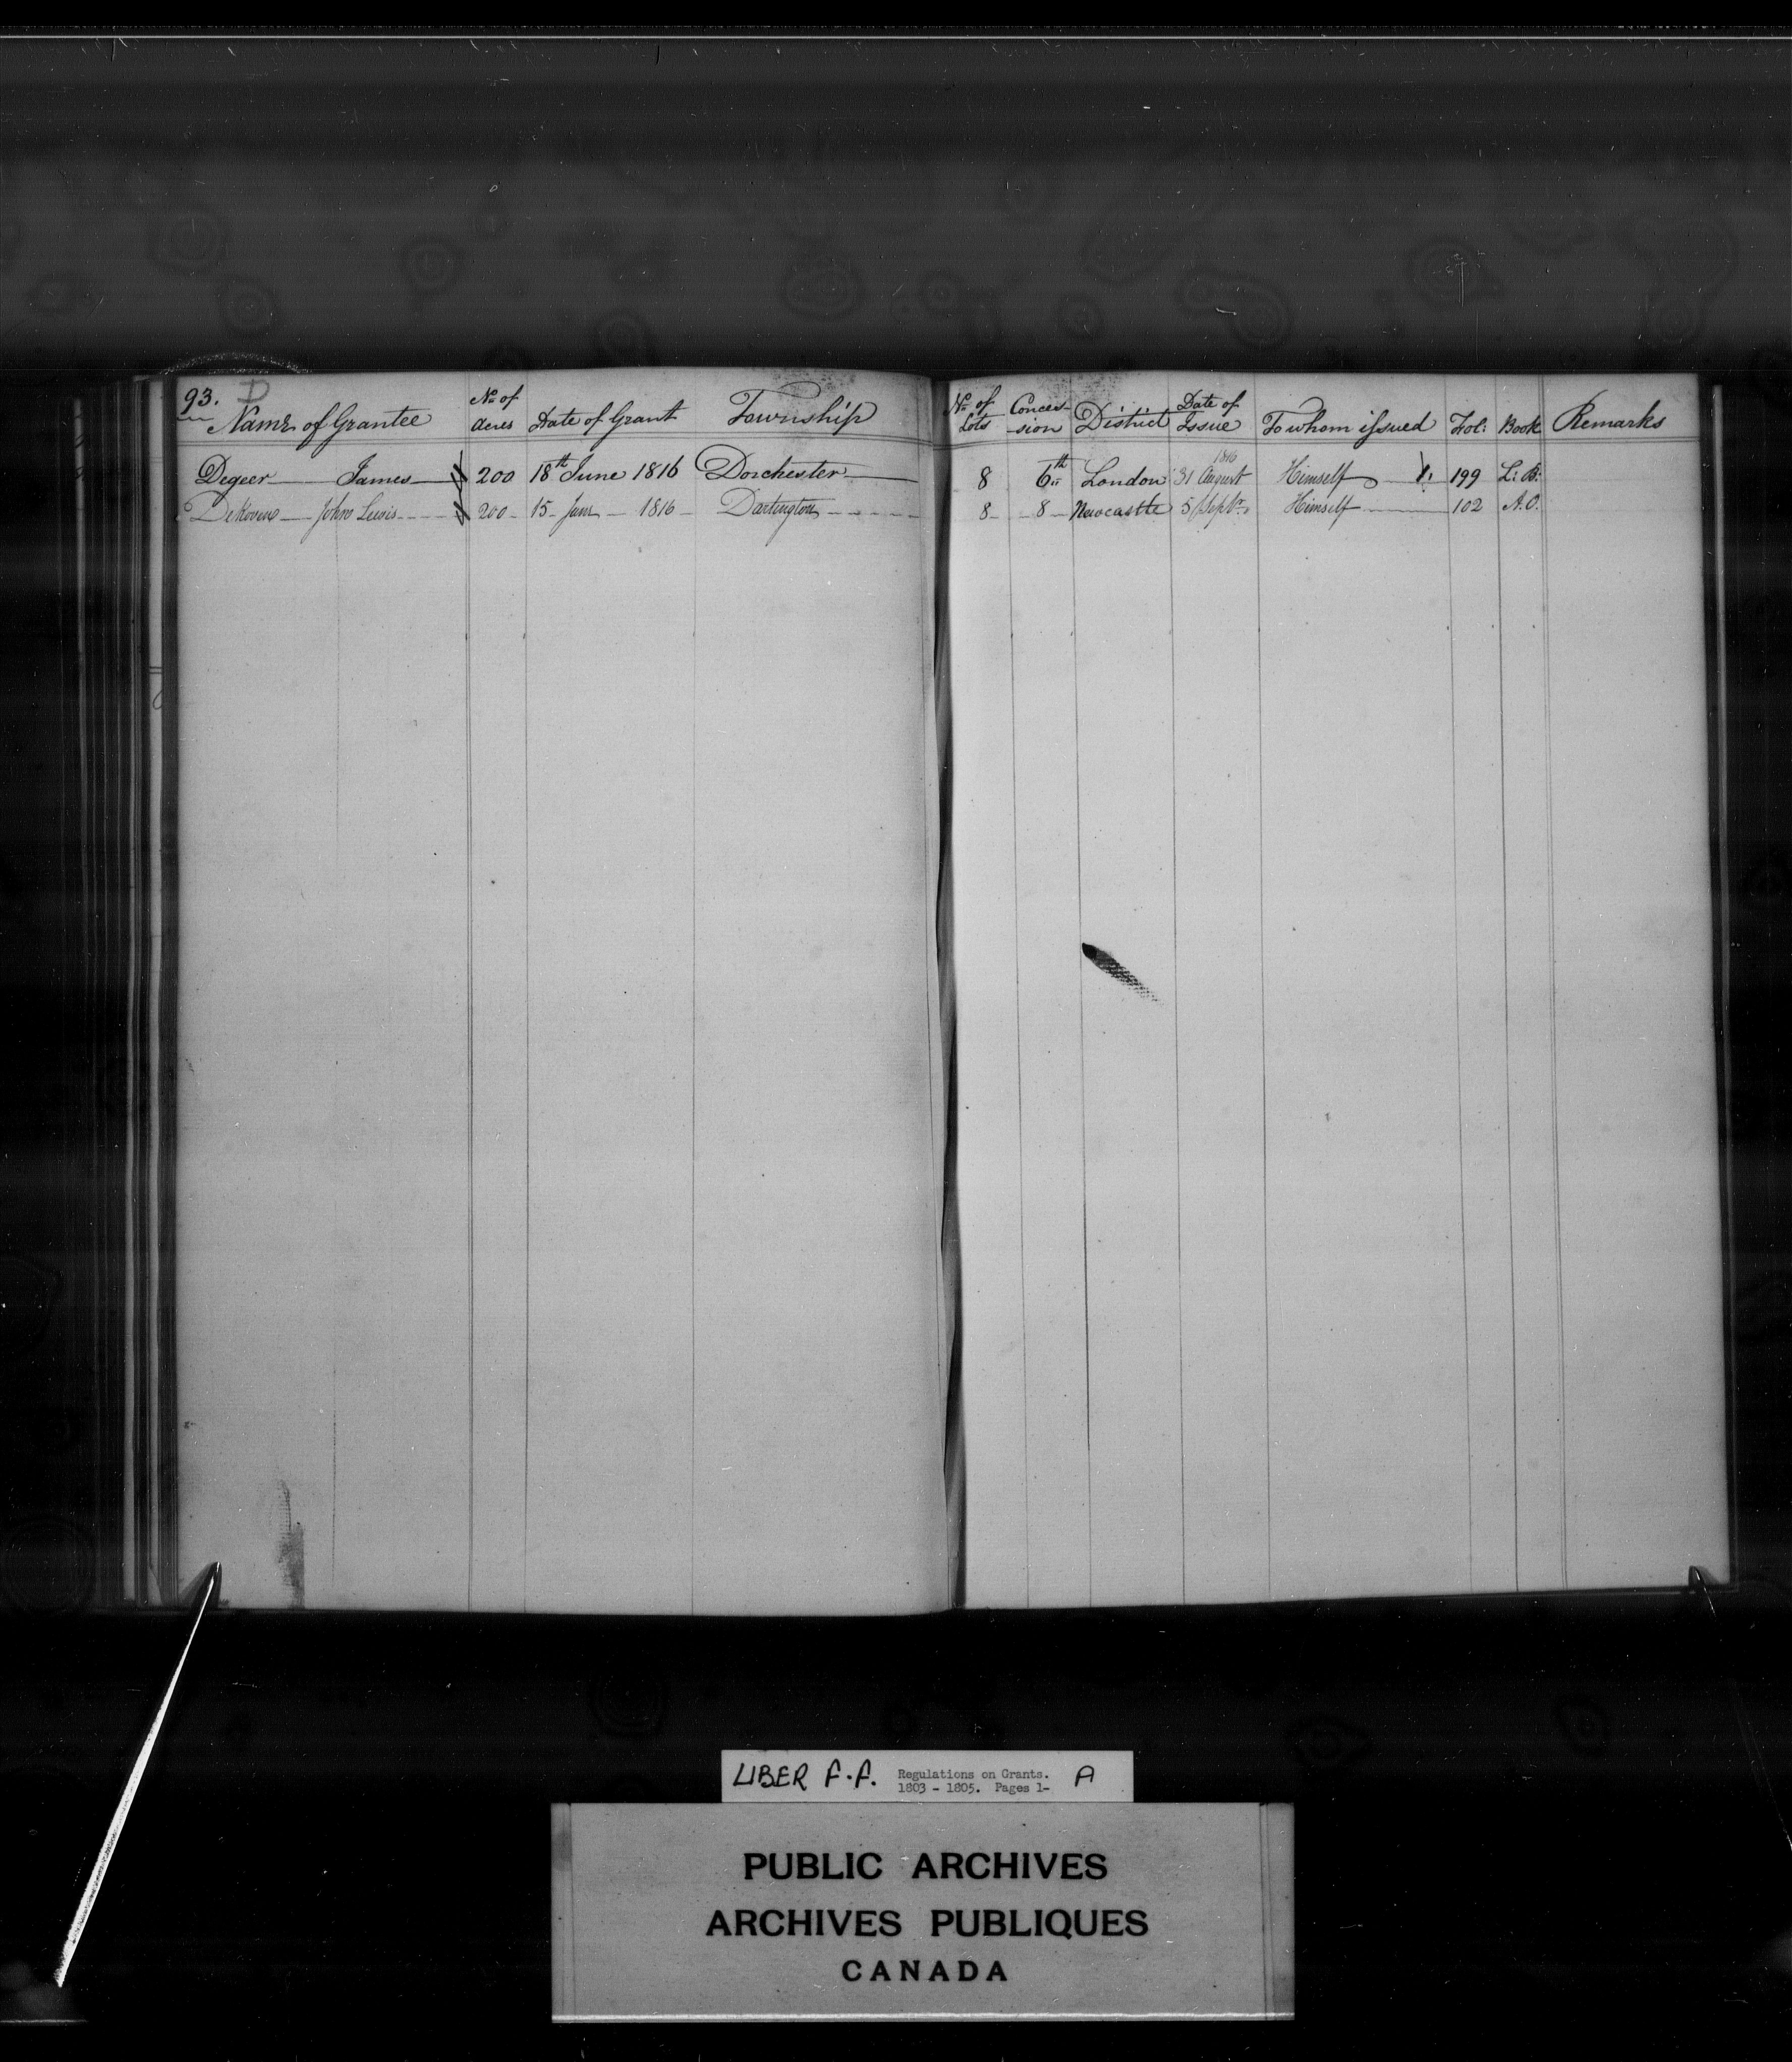 93. D
Name of Grantee No. of Acres Date of Grant Township No. of Lots Conces-sion District Date of Issue To whom issued Fol: Book Remarks
1816
Degeer James 200 18th June 1816 Dorchester 8 6th London 31 August Himself 1. 199 L: B:
John Lewis 200 15 1816 Darlington 8 8 Newcastle 5 Septr. Himself 102 A. O.
LIBER F.F. Regulations on Grants. A
1803 - 1805. Pages 1-
PUBLIC ARCHIVES
ARCHIVES PUBLIQUES
CANADA